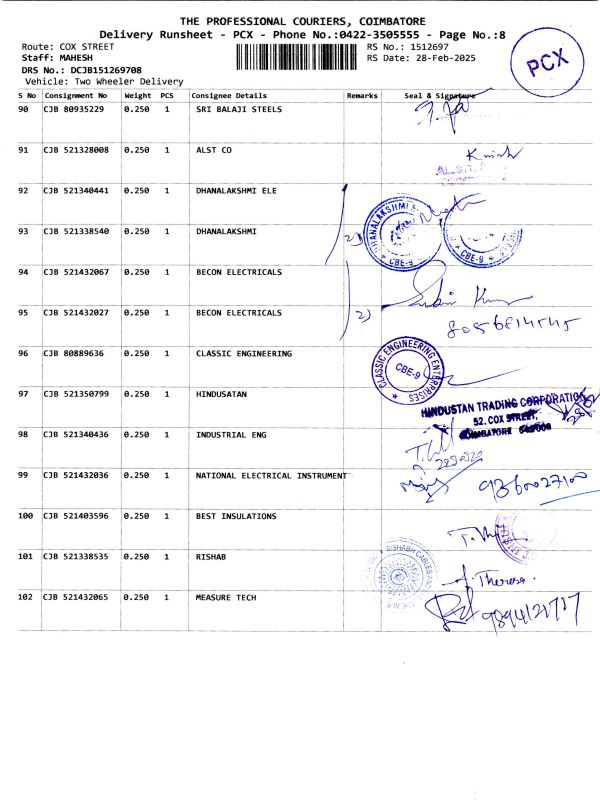 THE PROFESSIONAL COURIERS, COIMBATORE
Delivery Runsheet - PCX - Phone No.:0422-3505555 - Page No.:8
Route: COX STREET RS No.: 1512697
Staff: MAHESH RS Date: 28-Feb-2025
DRS No.: DCJB151269708
Vehicle: Two Wheeler Delivery
PCX
S No Consignment No Weight PCS Consignee Details Remarks Seal & Signature
90 CJB 80935229 0.250 1 SRI BALAJI STEELS
91 CJB 521328008 0.250 1 ALST CO
92 CJB 521340441 0.250 1 DHANALAKSHMI ELE
93 CJB 521338540 0.250 1 DHANALAKSHMI 2) DHANALAKSHMI CBE-9 CBE-9
94 CJB 521432067 0.250 1 BECON ELECTRICALS
95 CJB 521432027 0.250 1 BECON ELECTRICALS 2)
96 CJB 80889636 0.250 1 CLASSIC ENGINEERING CLASSIC ENGINEERING ENTERPRISES CBE-9
97 CJB 521350799 0.250 1 HINDUSATAN HINDUSTAN TRADING CORPORATION
52. COX STREET,
98 CJB 521340436 0.250 1 INDUSTRIAL ENG COIMBATORE
99 CJB 521432036 0.250 1 NATIONAL ELECTRICAL INSTRUMENT 9360027100
100 CJB 521403596 0.250 1 BEST INSULATIONS
101 CJB 521338535 0.250 1 RISHAB RISHABH CABLES Theresa.
102 CJB 521432065 0.250 1 MEASURE TECH